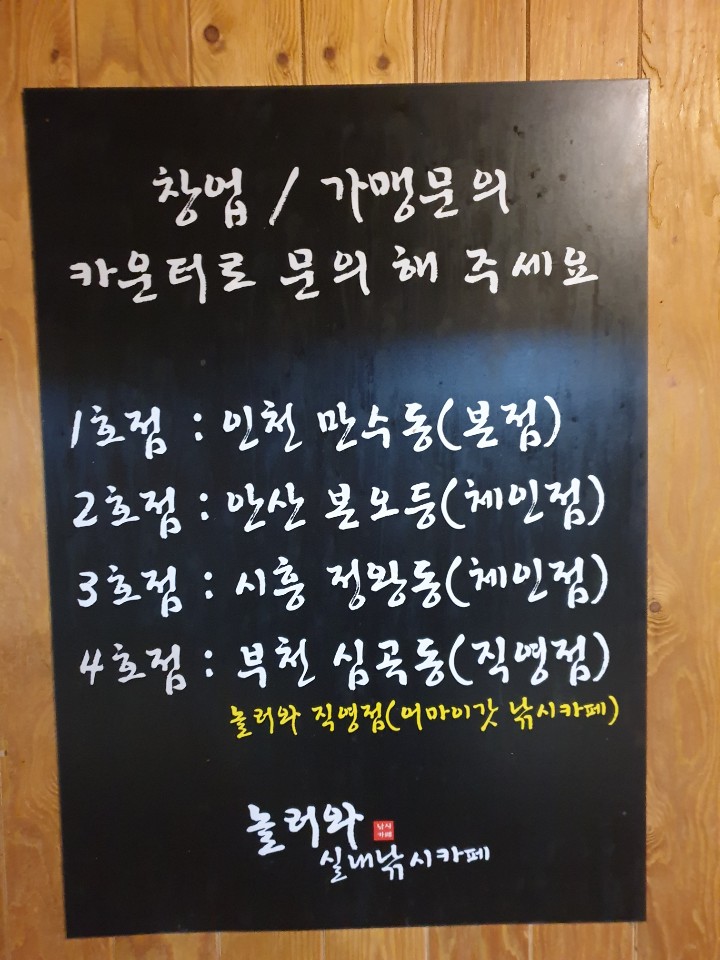 창업 / 가맹문의
카운터로 문의 해 주세요
1호점 : 인천 만수동(본점)
2호점 : 안산 본오동(체인점)
3호점 : 시흥 정왕동(체인점)
4호점 : 부천 심곡동(직영점)
놀러와 직영점(어마이갓 낚시카페)
놀러와
낚시
카페
실내낚시카페